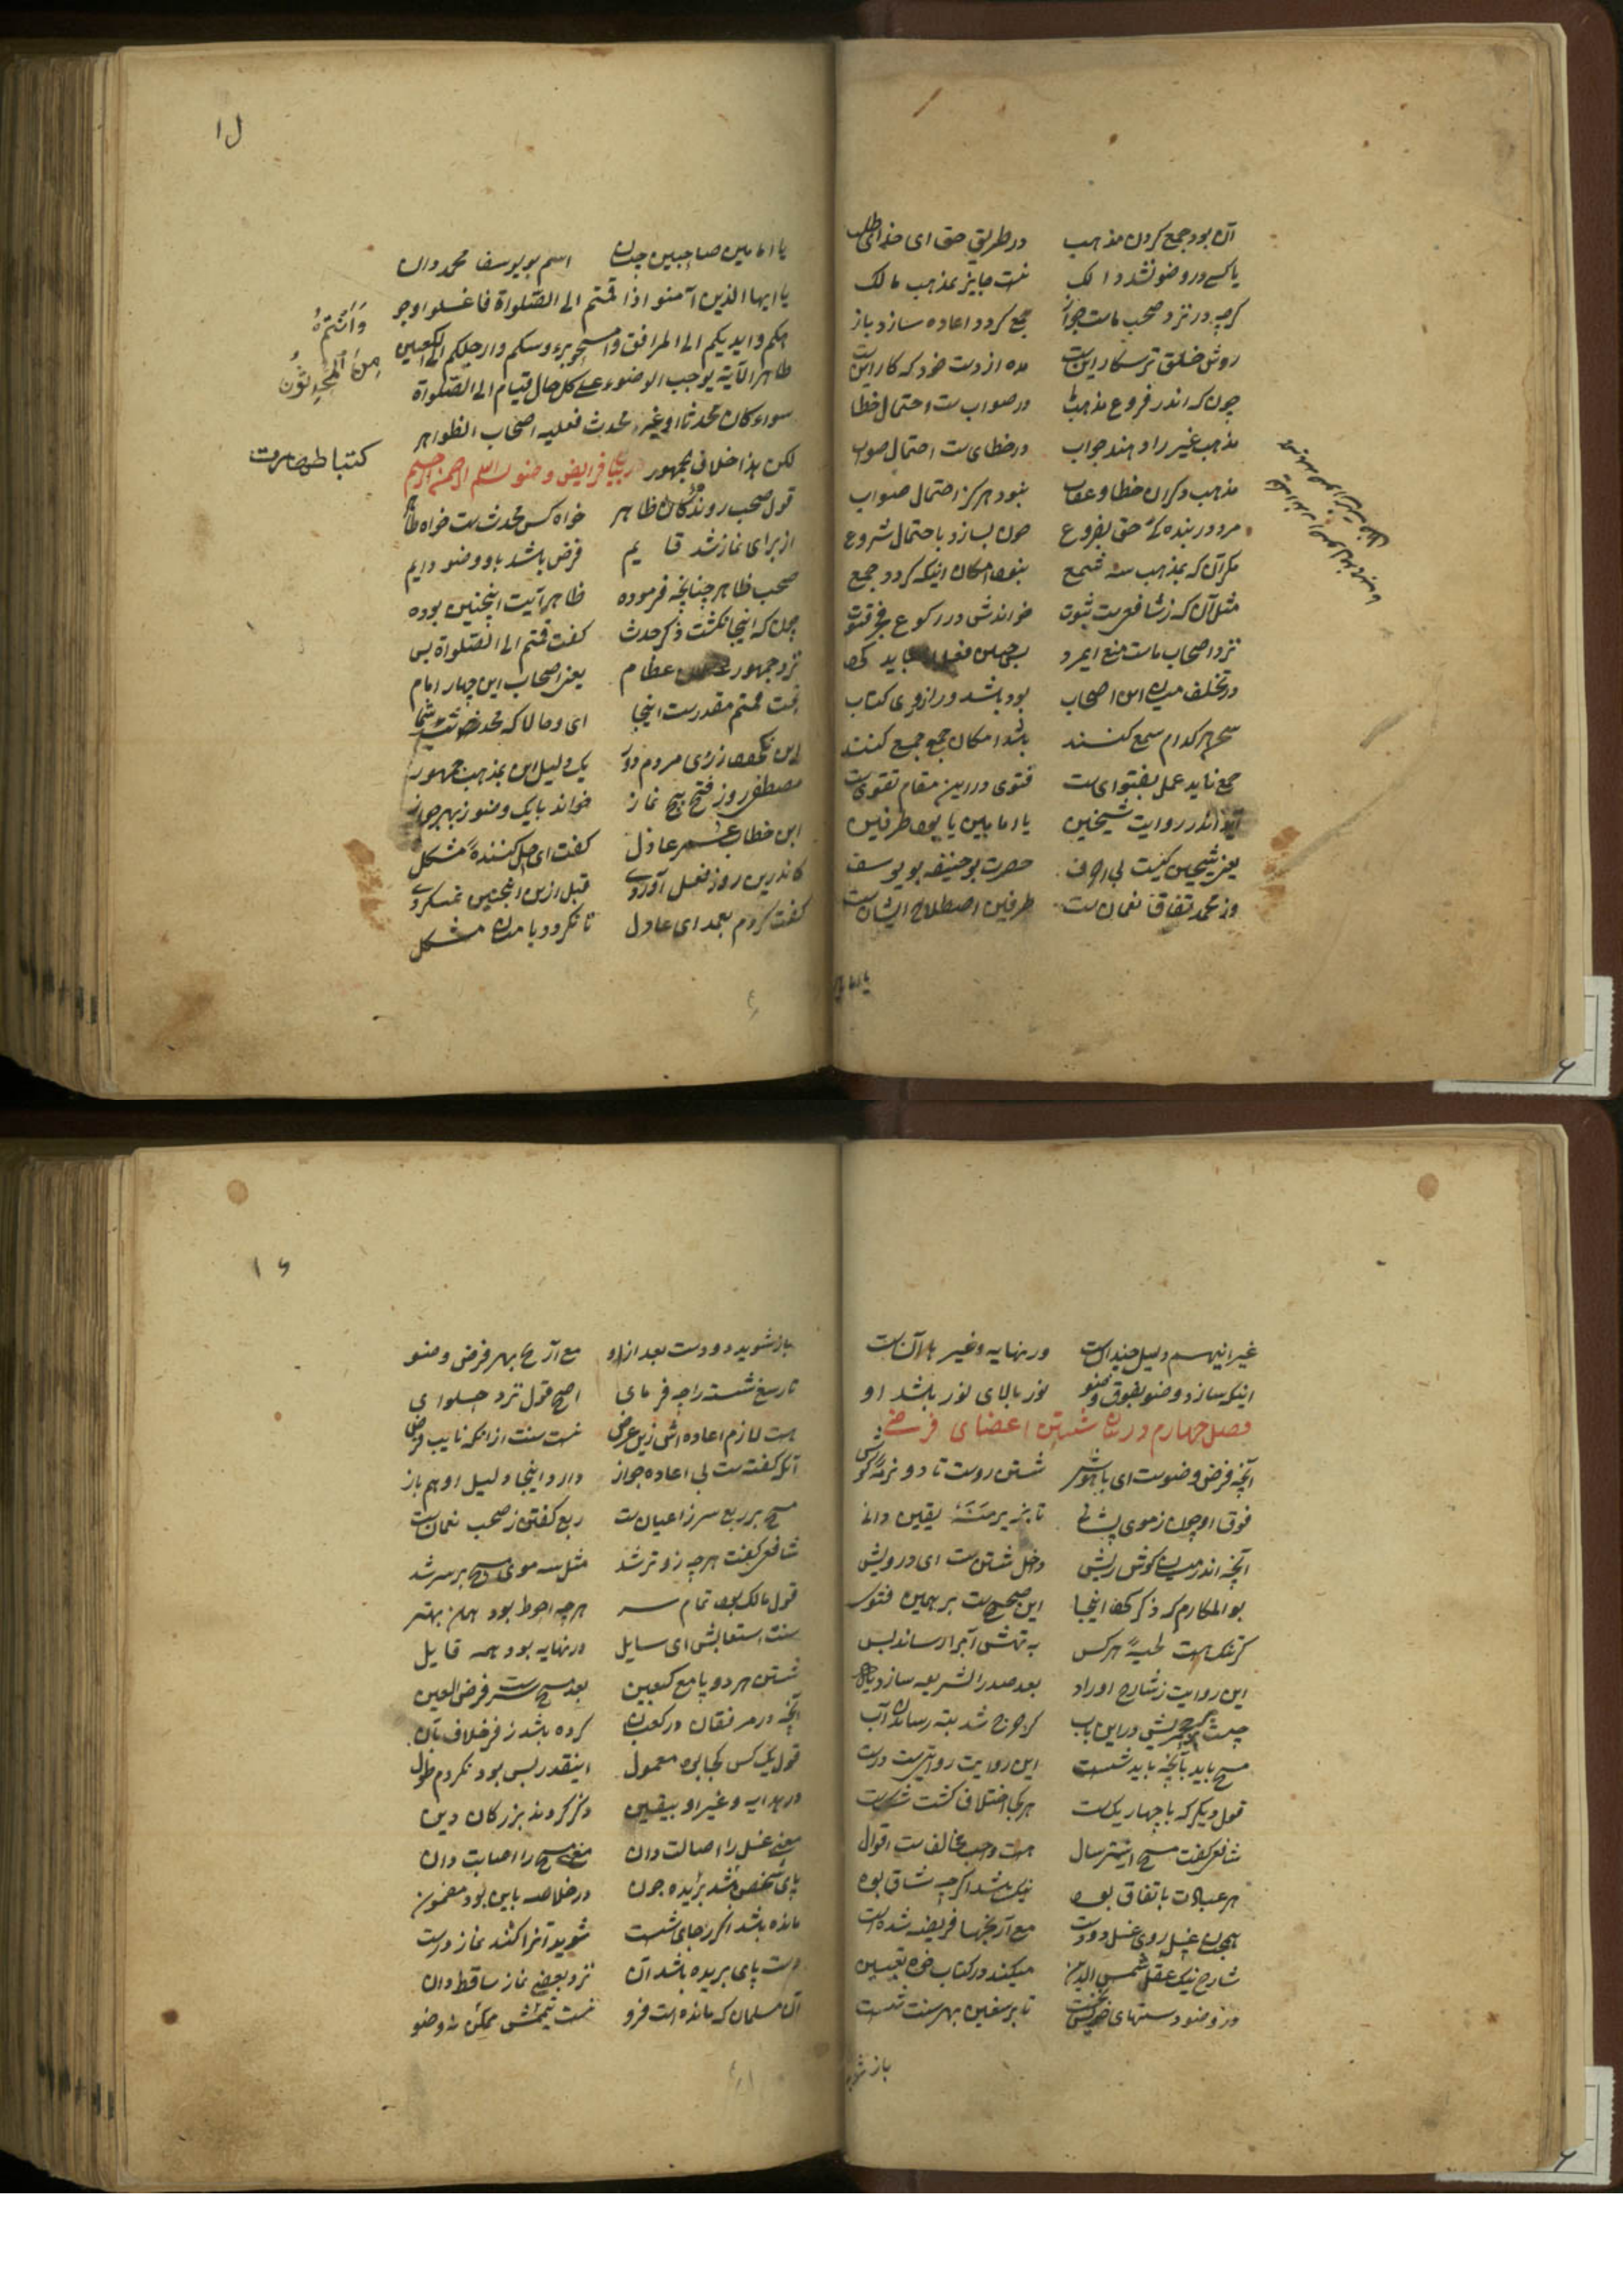 آن بود جمع کردن مذهب در طریق حق ای خدای طلب
یا کسی در وضو نشد دالک نیست جایز بمذهب مالک
کرچه در نزد صحب ماست جواز جمع کردد اعاده سازد باز
روش خلق ترسکار اینست مده از دست خود که کار اینست
چون که اندر فروع مذهب ما در صوابست احتمال خطا
مذهب غیر را دهند جواب در خطایست احتمال صواب
مذهب دکران خطا و عقاب نبود هرکز احتمال صواب
مرد در بنده حق بفروع چون بسازد باحتمال شروع
مکر آن که بمذهب سه مجتمع نبود امکان اینکه کردد جمع
مثل آن که ز شافعیست ثبوت خواندش در رکوع فجر قنوت
نزد اصحاب ماست منع ایمرد پس چنین فعل باید کرد
در تخلف میان این اصحاب بود باشد ور از وی کتاب
هر کدام سمع کنند باشد امکان جمع جمع کنند
جمع ناید عمل بفتوای ست فتوی در این مقام تقوی ست
آید اندر روایت شیخین یا امامین یا بود طرفین
یعنی شیخین کیست بی اوف حضرت بو حنیفه بو یوسف
وز محمد تفاق نعمان ست طرفین اصطلاح ایشان ست
یا اما
ا ل
یا امامین صاحبین چدان اسم بو یوسف محمد دان
یا ایها الذین آمنو اذا قمتم الی الصلواة فاغسلوا وجو
هکم و ایدیکم الی المرافق وامسحو برءوسکم وارجلکم الی الکعبین
وَاَنْتُمْ
مِنَ الْمُحْدِثُون
ظاهر الآیة یوجب الوضوء علی کل حال قیام الی الصلواة
سواء کان محدثا او غیر محدث فعلیه اصحاب الظواهر
لکن هذا خلاف جمهور در بیان فرایض وضو بسم الله الرحمن الرحیم
کتبا طهارت
قول صحب روندکان ظاهر خواه کس محدث ست خواه طاهر
از برای نماز شد قایم فرض باشد باو وضو دایم
صحب ظاهر چنانچه فرموده ظاهر آیت اینچنین بوده
چون که اینجا نکشت ذکر حدث کفت قمتم الی الصلواة بس
نزد جمهور عظام یعنی اصحاب این چهار امام
قمتم مقدرست اینجا ای و حالا که محدث شما
این نکوید ز روی مردم دور یک دلیل این بمذهب جمهور
مصطفی روز فتح پنج نماز خواند با یک وضو ز بهر جواز
ابن خطاب عمر عادل کفت ای حل کننده مشکل
کاندرین روز فعل آوردی قبل ازین اینچنین نمیکردی
کفت کردم بعمد ای عادل تا نکردد با مردن مشکل
غیر اینهم دلیل چندانست در نهایه و غیر با آن ست
اینکه سازد وضو بفوق وضو نور بالای نور باشد او
فصل چهارم در بیان شستن اعضای فرضی
آنچه فرض وضوست ای باهوش شستن روست تا دو نرمه کوش
فوق او چون ز موی پیشانی تا بزیر منه یقین دانی
آنچه اندر میان کوش ریش دخل شستن ست ای درویش
بو المکارم که ذکر کرد اینجا این صحیح ست بر همین فتوی
کر تنک هست لحیهٔ هر کس به تهش آب را رساند بس
این روایت ز شارح اوراد بعد صدر الشریعه سازد یاد
مسح ریش در این باب کر خرج شد بته رساندن آب
مسح باید بآنچه باید شست این روایت روایتیست درست
قول دیکر که با چهار یک ست هر کجا اختلاف کشت شکست
شافعی کفت مسح اینتر سال هست وجب مخالف ست اقوال
هر عبادت باتفاق بود نیک باشد اکرچه شاق بود
همچنان غسل روی غسل دو دست مع آرنجها فریضه شده است
شارح نیک عقل شمس الدین میکند در کتاب خود تعیین
در وضو دستهای خویش نخست تا برسغین بهر سنت شست
باز شوید
۱۶
باز شوید دو دست بعد ازو مع آرنج بهر فرض وضو
تا رسغ شسته را چه فرمایی اصح قول نزد حلوایی
هست لازم اعاده اش زین عرض نیست سنت از آنکه نایب فرض
آنکه کفته ست بی اعاده جواز دارد اینجا دلیل او هم باز
مسح بر ربع سر ز اعیان ست ربع کفتن ز صحب نعمان ست
شافعی کفت هرچه زو تر شد مثل سه موی مسح بر سر شد
قول مالک بود تمام سر هرچه احوط بود همان بهتر
سنت استعابش ای سایل در نهایه بود همه قایل
شستن هر دو پا مع کعبین بعد مسح سر ست فرض العین
آنچه در مرفقان در کعبان کرده باشد زفر خلاف بآن
قول یک کس کجا بود معمول اینقدر بس بود نکردم طول
در هدایه و غیر او بیقین ذکر کردند بزرکان دین
معنی غسل را اصالت دان معنی مسح را اصابت دان
پای شخص باشد بریده چون در خلاصه باین بود مضمون
مانده باشد اکر ز جای شست شوید آنرا کند نماز درست
دست پای بریده باشد آن نزد بعضی نماز ساقط دان
آن مسلمان که مانده است فرو نیست تیممش ممکن نه وضو